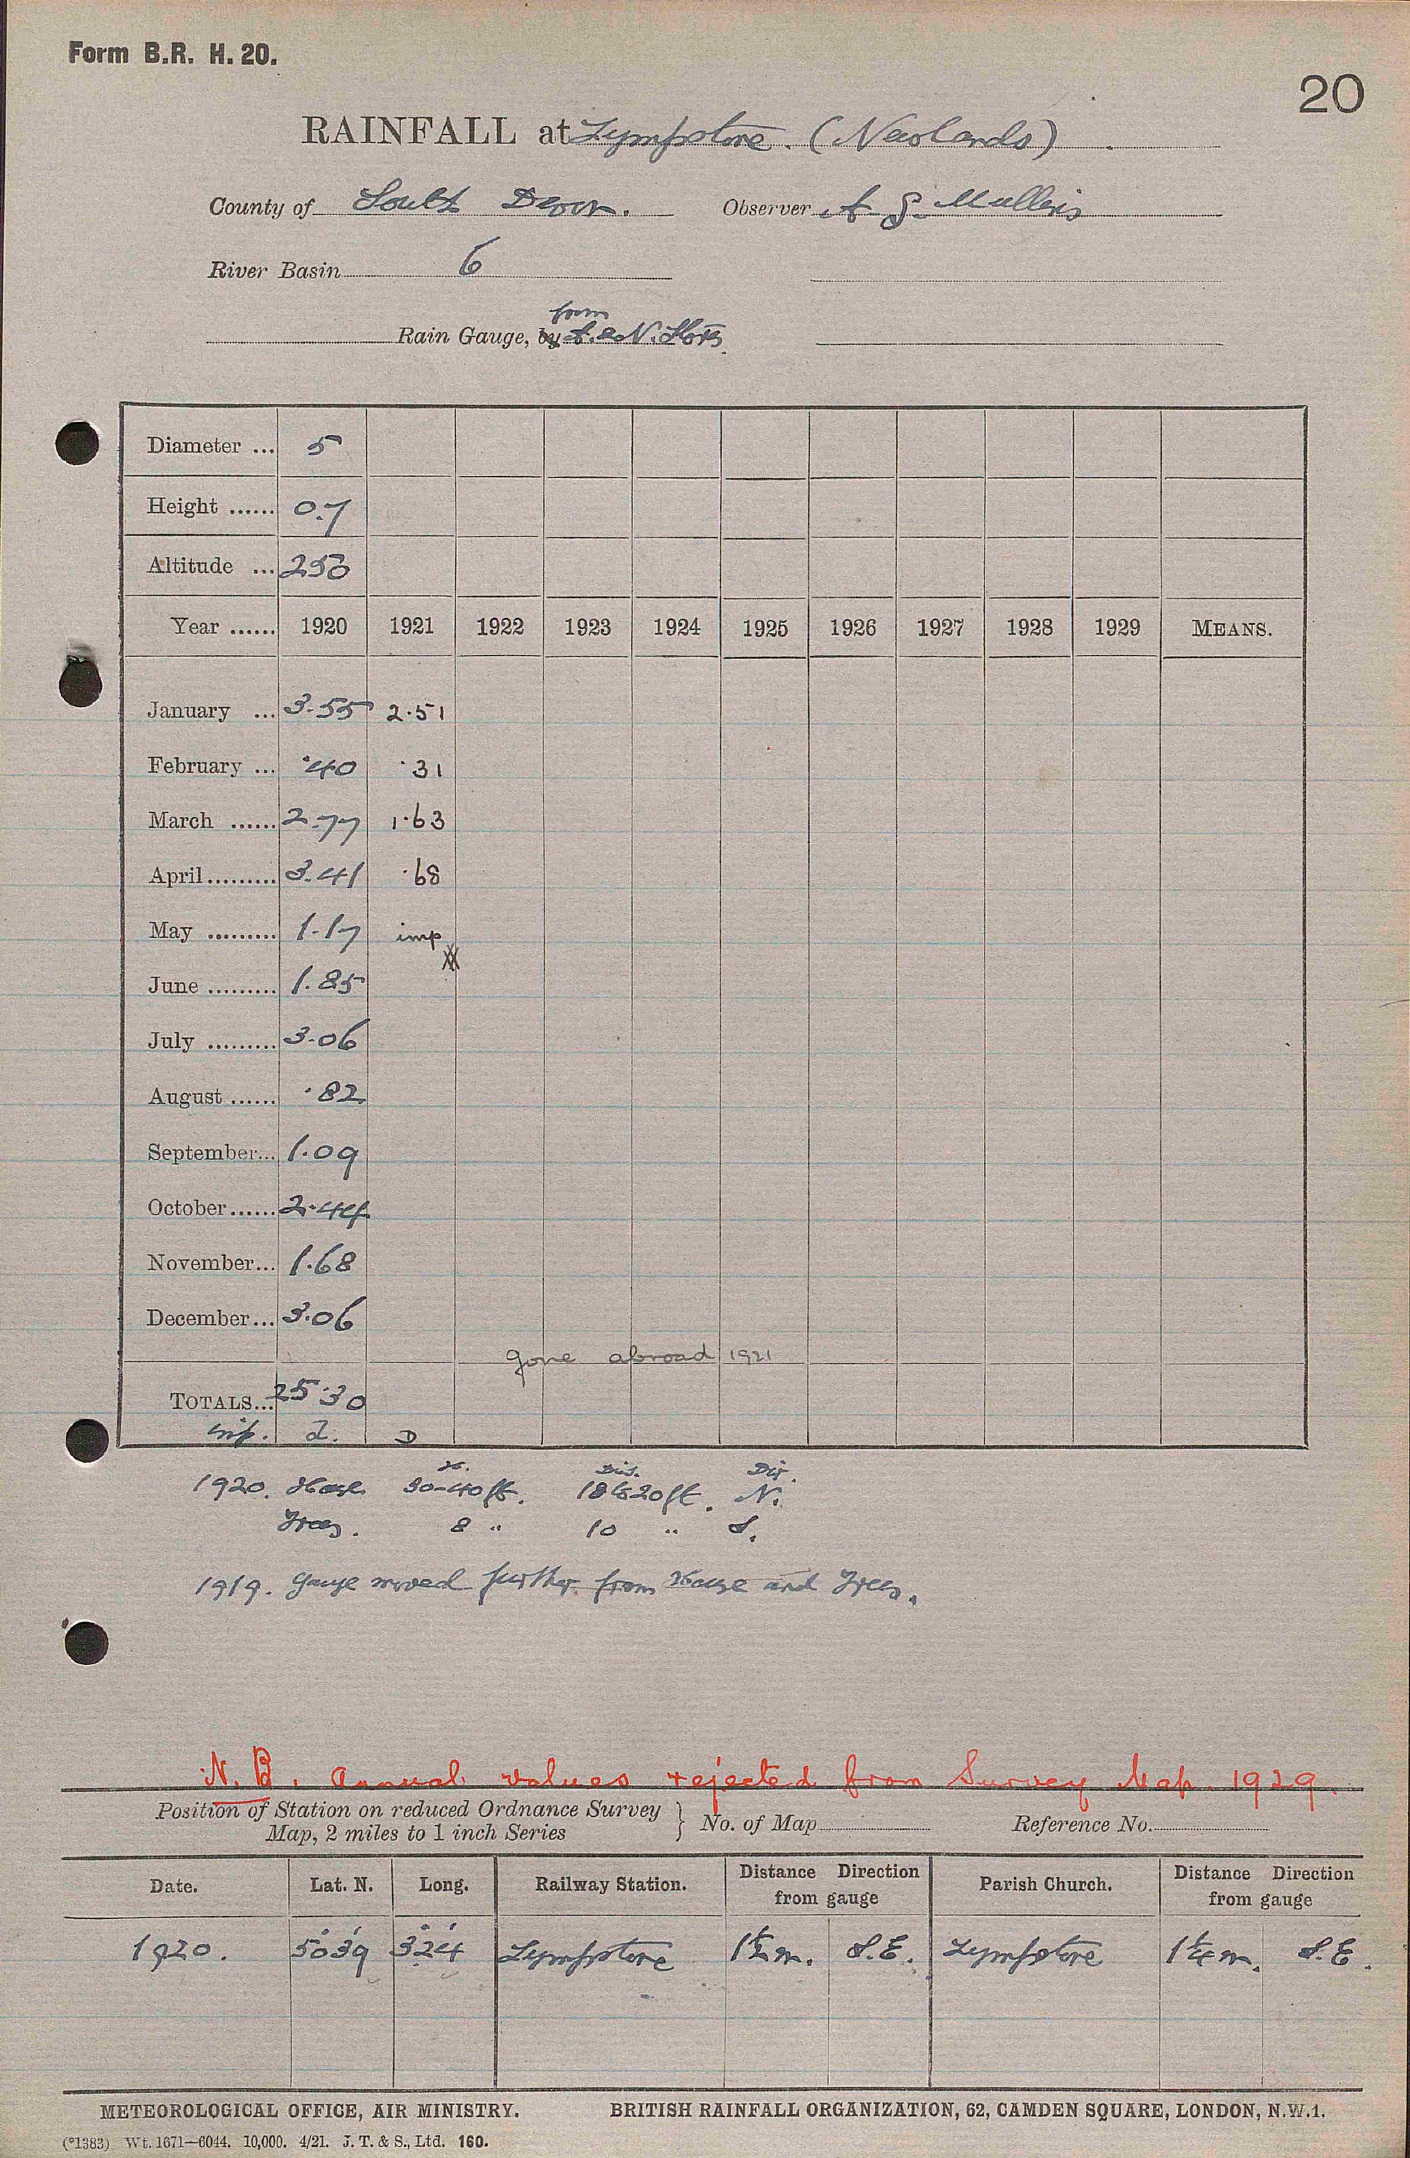 Form B.R. H. 20.
20
RAINFALL at Lympstone. (Newlands)
County of South Devon. Observer A. G. Mullins
River Basin 6
from
Rain Gauge, by A. & N. Stores
Diameter ... 5
Height ...... 0.7
Altitude ... 250
Year ...... 1920 1921 1922 1923 1924 1925 1926 1927 1928 1929 MEANS.
January ... 3.55 2.51
February ... .40 .31
March ...... 2.77 1.63
April ......... 3.41 .68
May ......... 1.17 imp
June ......... 1.85
July ......... 3.06
August ...... .82
September ... 1.09
October ...... 2.44
November ... 1.68
December ... 3.06
gone abroad 1921
TOTALS ... 25.30
D
Ht. Dis. Dir.
1920. House 30-40 ft. 18 to 20 ft. N.
Trees. 8 " 10 " S.
1919. Gauge moved further from House and Trees.
N.B. Annual values rejected from Survey Map 1929.
Position of Station on reduced Ordnance Survey Map, 2 miles to 1 inch Series } No. of Map Reference No.
Date. Lat. N. Long. Railway Station. Distance Direction from gauge Parish Church. Distance Direction from gauge
1920. 50° 39' 3° 24' Lympstone 1½ m. S.E. Lympstone 1¼ m. S.E.
METEOROLOGICAL OFFICE, AIR MINISTRY. BRITISH RAINFALL ORGANIZATION, 62, CAMDEN SQUARE, LONDON, N.W.1.
(*1383) Wt. 1671—6044. 10,000. 4/21. J. T. & S., Ltd. 160.